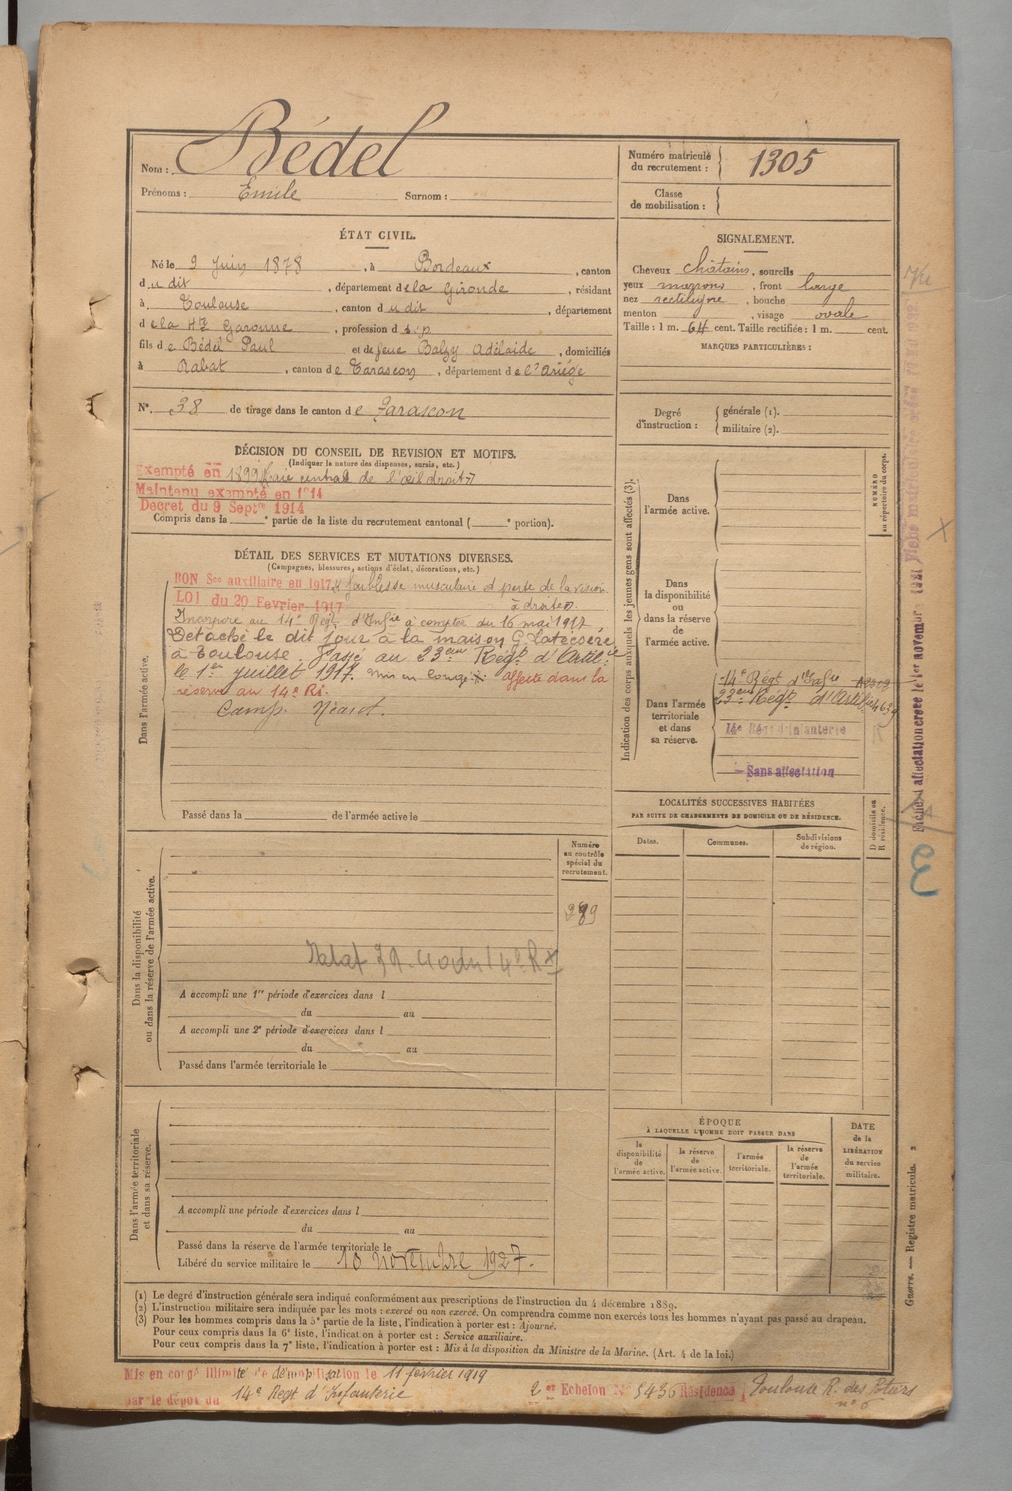 Nom : Bédel
Prénoms : Emile Surnom :
Numéro matricule du recrutement : 1305
Classe de mobilisation :
ÉTAT CIVIL.
Né le 9 Juin 1878, à Bordeaux, canton
du dit, département de la Gironde, résidant
à Toulouse, canton du dit, département
de la Hte Garonne, profession d s.p
fils de Bédel Paul et de feue Balzy Adélaïde, domiciliés
à Rabat, canton de Tarascon, département de l'Ariège
N°. 38 de tirage dans le canton de Tarascon
SIGNALEMENT.
Cheveux châtains, sourcils
yeux marrons, front large
nez rectiligne, bouche
menton, visage ovale
Taille : 1 m. 64 cent. Taille rectifiée : 1 m. cent.
MARQUES PARTICULIÈRES :
Degré d'instruction : générale (1).
militaire (2).
DÉCISION DU CONSEIL DE REVISION ET MOTIFS.
(Indiquer la nature des dispenses, sursis, etc.)
Exempté en 1899 taie centrale de l'œil droit
Maintenu exempté en 1914
Décret du 9 Septre 1914
Compris dans la e partie de la liste du recrutement cantonal ( e portion).
DÉTAIL DES SERVICES ET MUTATIONS DIVERSES.
(Campagnes, blessures, actions d'éclat, décorations, etc.)
BON Sce auxiliaire en 1917 faiblesse musculaire et perte de la vision
LOI du 20 Fevrier 1917 à droite
Incorporé au 14e Régt d'Infie à compter du 16 mai 1917,
Détaché le dit jour à la maison G. Latécoère
à Toulouse. Passé au 23eme Régt d'Artilie
le 1er juillet 1917. mis en congé affecté dans la
réserve au 14e Ri.
Camp. Néant.
Dans l'armée active.
Passé dans la de l'armée active le
Indication des corps auxquels les jeunes gens sont affectés (3).
NUMÉRO au répertoire du corps.
Dans l'armée active.
Dans la disponibilité ou dans la réserve de l'armée active.
Dans l'armée territoriale et dans sa réserve.
14e Régt d'Infie
23eme Régt d'Artilie
14e Régt d'infanterie
Sans affectation
LOCALITÉS SUCCESSIVES HABITÉES
PAR SUITE DE CHANGEMENTS DE DOMICILE OU DE RÉSIDENCE.
Dates. Communes. Subdivisions de région. D domicile ou R résidence.
Dans la disponibilité ou dans la réserve de l'armée active.
Numéro au contrôle spécial du recrutement.
A accompli une 1re période d'exercices dans l
du au
A accompli une 2e période d'exercices dans l
du au
Passé dans l'armée territoriale le
Dans l'armée territoriale et dans sa réserve.
A accompli une période d'exercices dans l
du au
Passé dans la réserve de l'armée territoriale le
Libéré du service militaire le 10 novembre 1927.
ÉPOQUE
À LAQUELLE L'HOMME DOIT PASSER DANS
la disponibilité de l'armée active.
la réserve de l'armée active.
l'armée territoriale.
la réserve de l'armée territoriale.
DATE de la LIBÉRATION du service militaire.
(1) Le degré d'instruction générale sera indiqué conformément aux prescriptions de l'instruction du 4 décembre 1889.
(2) L'instruction militaire sera indiquée par les mots : exercé ou non exercé. On comprendra comme non exercés tous les hommes n'ayant pas passé au drapeau.
(3) Pour les hommes compris dans la 5e partie de la liste, l'indication à porter est : Ajourné.
Pour ceux compris dans la 6e liste, l'indication à porter est : Service auxiliaire.
Pour ceux compris dans la 7e liste, l'indication à porter est : Mis à la disposition du Ministre de la Marine. (Art. 4 de la loi.)
Guerre. — Registre matricule. 2
Mis en congé illimité de démobilisation le 11 février 1919
par le dépôt du 14e Régt d'Infanterie
2er Echelon N° 5436 Résidence Toulouse R. des Potiers
n° 6